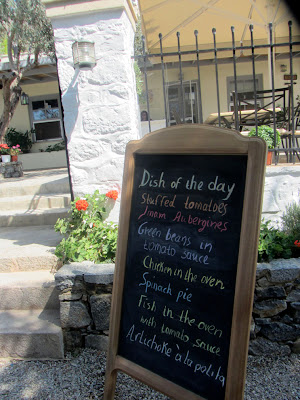 Dish of the day
Stuffed tomatoes
Imam Aubergines
Green beans in
tomato sauce
Chicken in the oven
Spinach pie
Fish in the oven
with tomato sauce
Artichoke à la polita